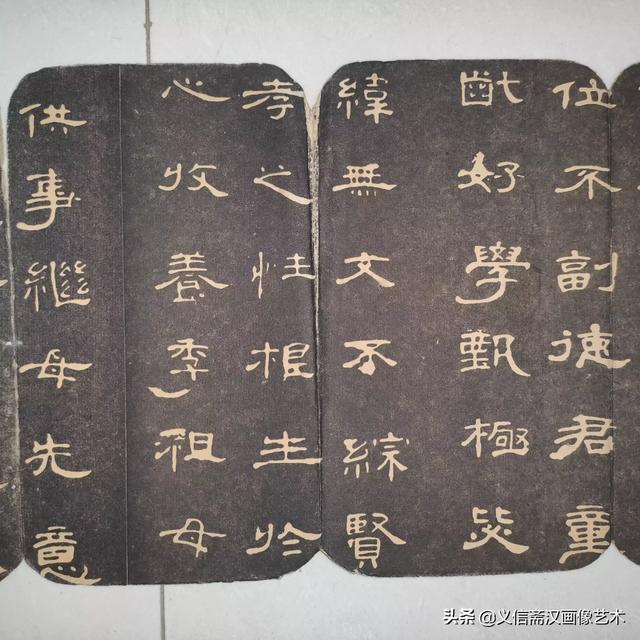 位不副德君童
齔好學甄極毖
緯無文不綜賢
孝之性根生於
心收養季祖母
供事繼母先意
头条 @义信斋汉画像艺术